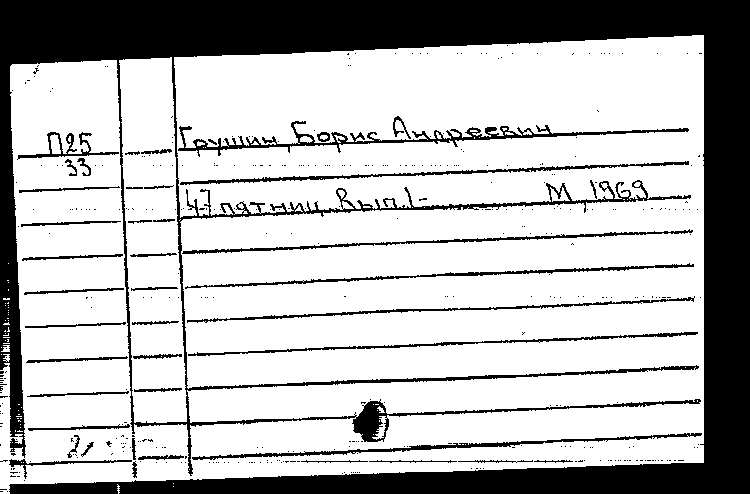 П25
33
Грушин, Борис Андреевич
47 пятниц. Вып. 1-
М, 1969